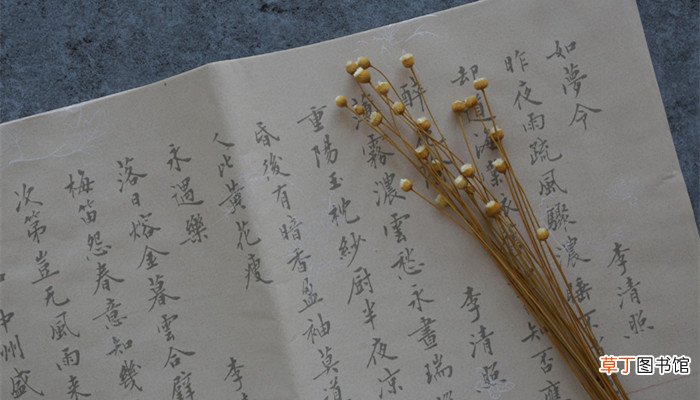 如夢令 李清照
昨夜雨疏風驟濃睡不
却道海棠依 知否應
醉 李清照
薄霧濃雲愁永晝瑞
重陽玉枕紗厨半夜凉
昏後有暗香盈袖莫道
人比黄花瘦
永遇樂 李
落日熔金暮雲合璧
梅笛怨春意知幾
次第豈无風雨来
中州盛
草丁图书馆